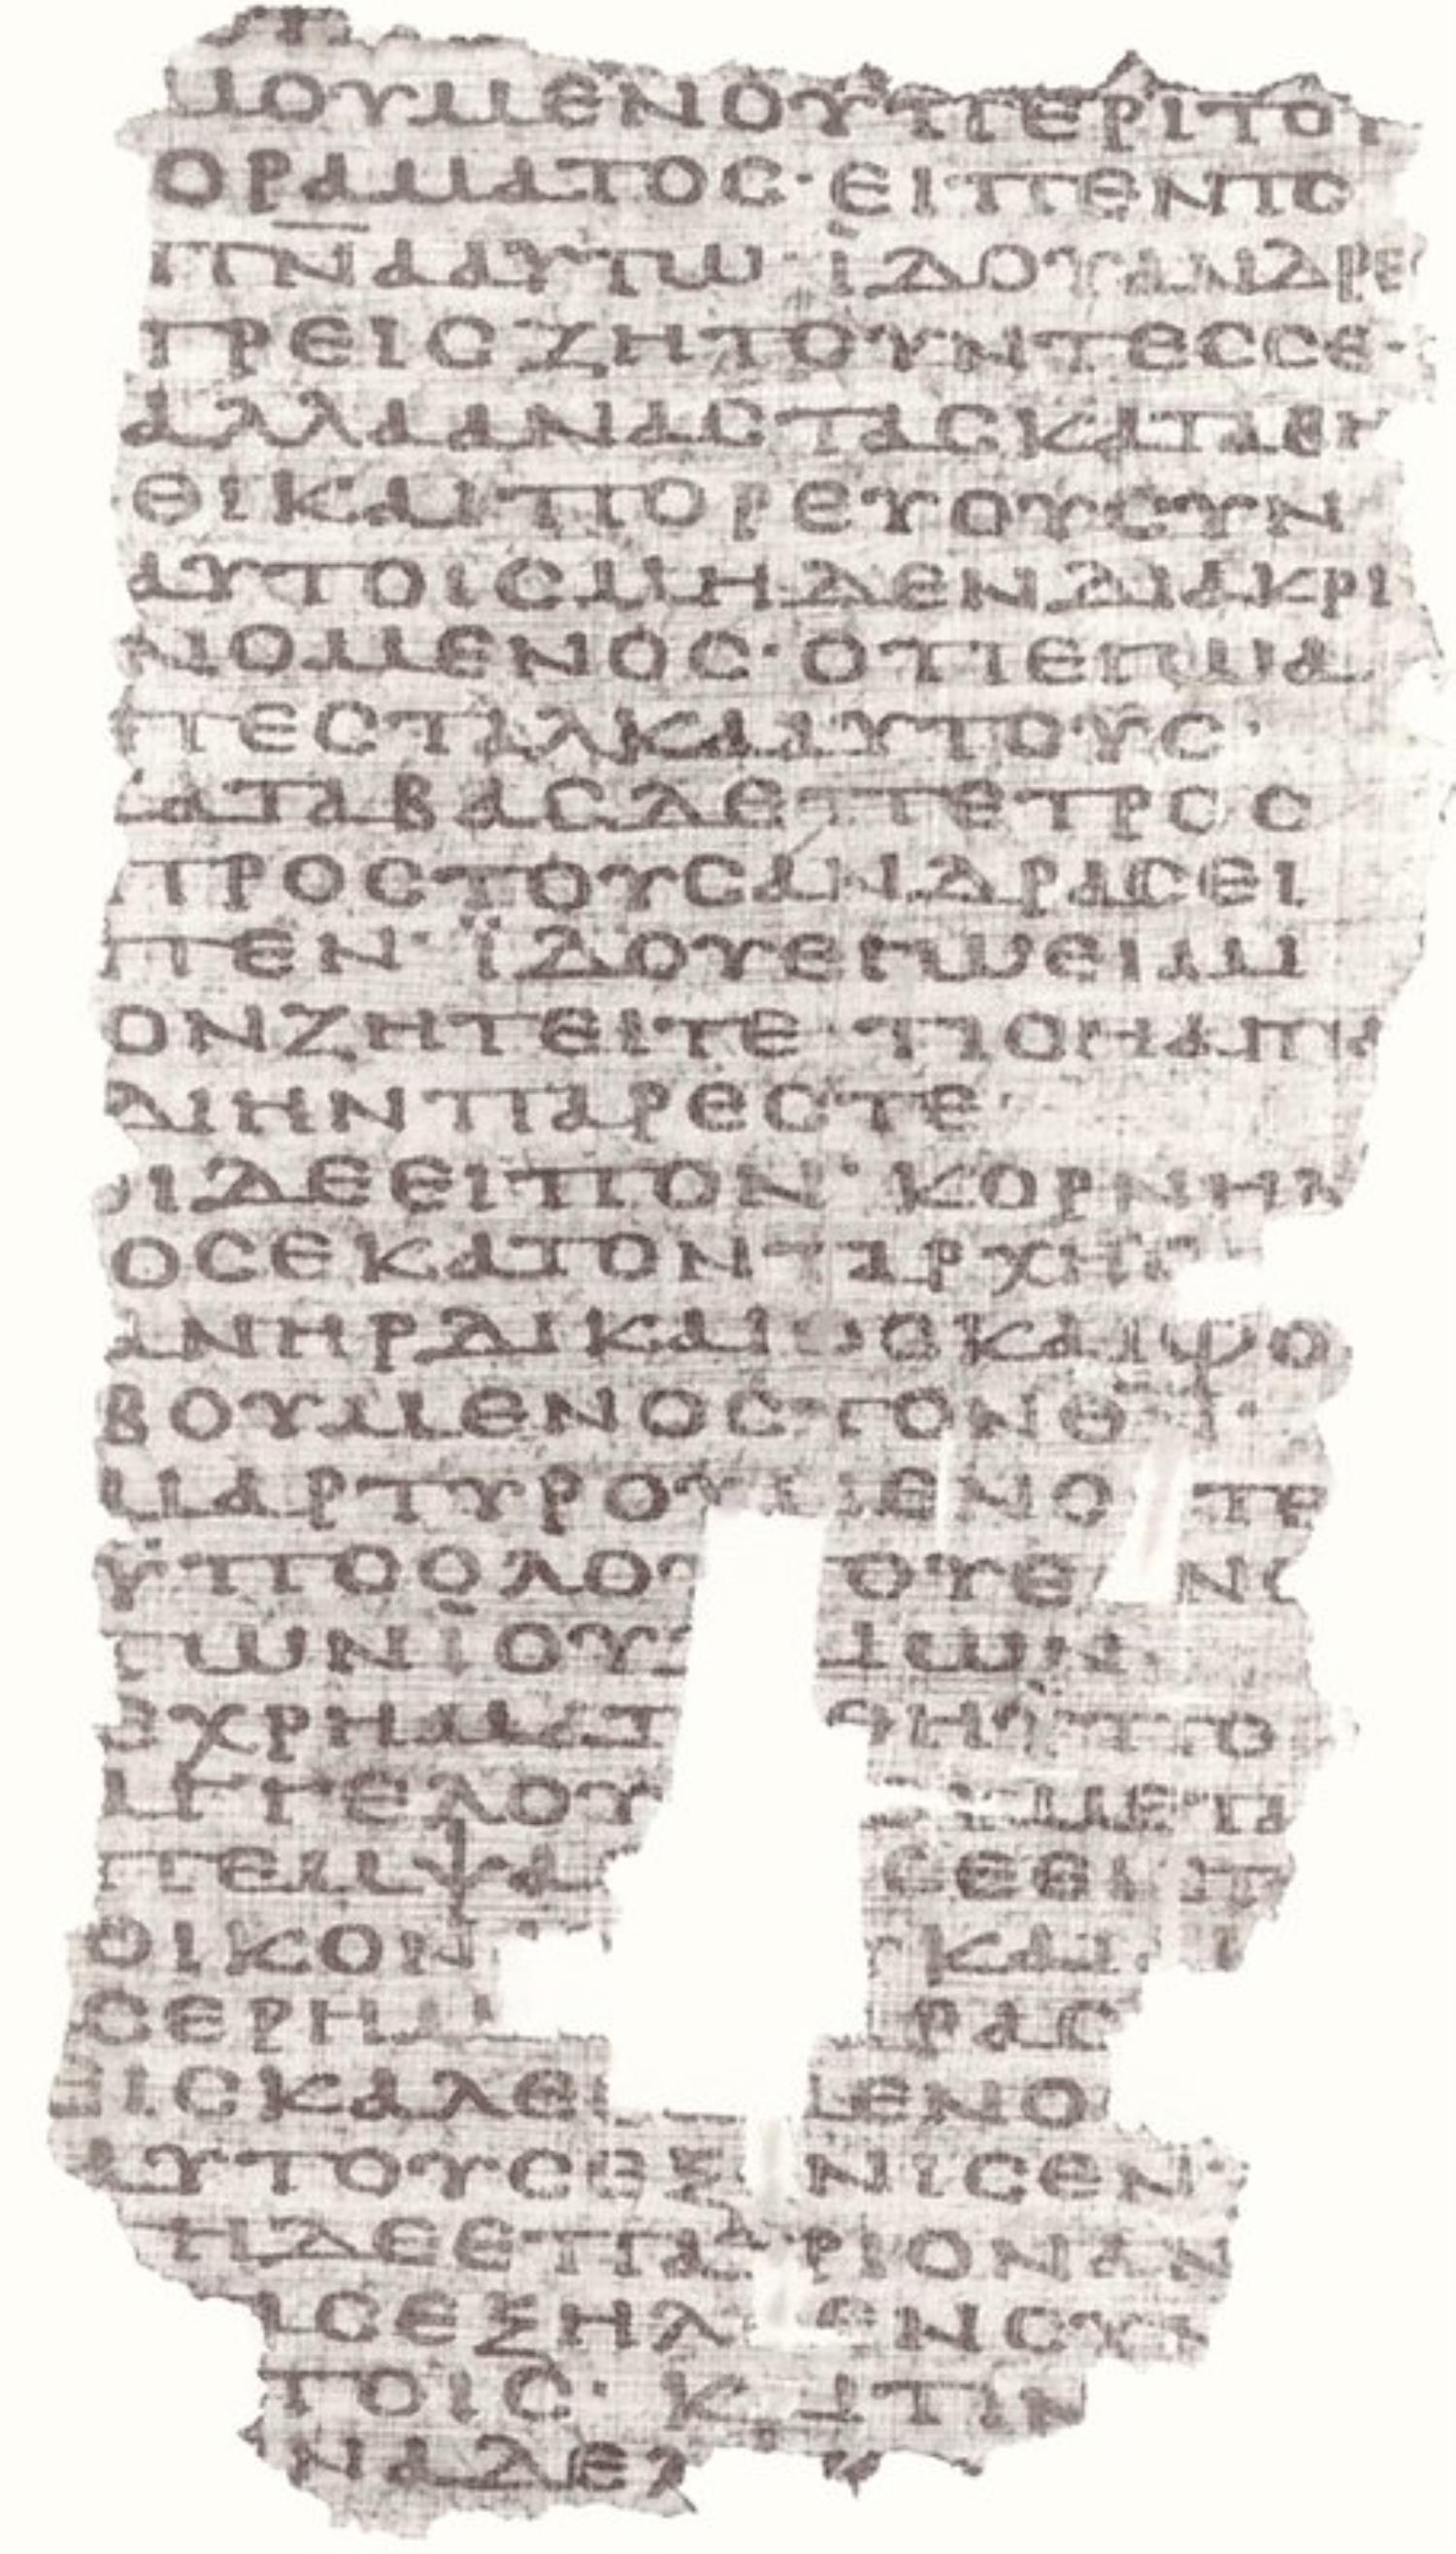 ΜΟΥΜΕΝΟΥ ΠΕΡΙ ΤΟΥ
ΟΡΑΜΑΤΟC· ΕΙΠΕΝ ΤΟ
Π̅Ν̅Α̅ ΑΥΤΩ· ΪΔΟΥ ΑΝΔΡΕ
ΤΡΕΙC ΖΗΤΟΥΝΤΕC CΕ·
ΑΛΛΑ ΑΝΑCΤΑC ΚΑΤΑΒΗ
ΘΙ ΚΑΙ ΠΟΡΕΥΟΥ CΥΝ
ΑΥΤΟΙC ΜΗΔΕΝ ΔΙΑΚΡΙ
ΝΟΜΕΝΟC· ΟΤΙ ΕΓΩ Α
ΠΕCΤΑΛΚΑ ΑΥΤΟΥC·
ΚΑΤΑΒΑC ΔΕ ΠΕΤΡΟC
ΠΡΟC ΤΟΥC ΑΝΔΡΑC ΕΙ
ΠΕΝ· ΪΔΟΥ ΕΓΩ ΕΙΜΙ
ΟΝ ΖΗΤΕΙΤΕ ΤΙΟ Η ΑΙΤΙΑ
ΔΙ ΗΝ ΠΑΡΕCΤΕ·
ΟΙ ΔΕ ΕΙΠΟΝ· ΚΟΡΝΗΛ
ΟC ΕΚΑΤΟΝΤΑΡΧΗC
ΑΝΗΡ ΔΙΚΑΙΟC ΚΑΙ ΦΟ
ΒΟΥΜΕΝΟC ΤΟΝ Θ
ΜΑΡΤΥΡΟΥΜΕΝΟ ΤΕ
ΫΠΟ ΟΛΟΥ ΤΟΥ Ε ΝΟ
ΤΩΝ ΙΟΥΔ ΑΙΩΝ
ΕΧΡΗΜΑΤ ΘΗ ΥΠΟ
ΑΓΓΕΛΟΥ ΜΕΤΑ
ΠΕΜΨΑ CΕ ΕΙ Τ
ΟΙΚΟΝ ΚΑΙ
CΕ ΡΗΜ ΠΑΡΑ C
ΕΙCΚΑΛΕ ΜΕΝΟ
ΑΥΤΟΥC ΕΞ ΝΙCΕΝ·
ΤΗ ΔΕ ΕΠΑΥΡΙΟΝ ΑΝ
ΑC ΕΞΗΛ ΕΝ CΥΝ
ΤΟΙC· Κ Ι ΤΙΝ
Ν ΑΔΕΛ